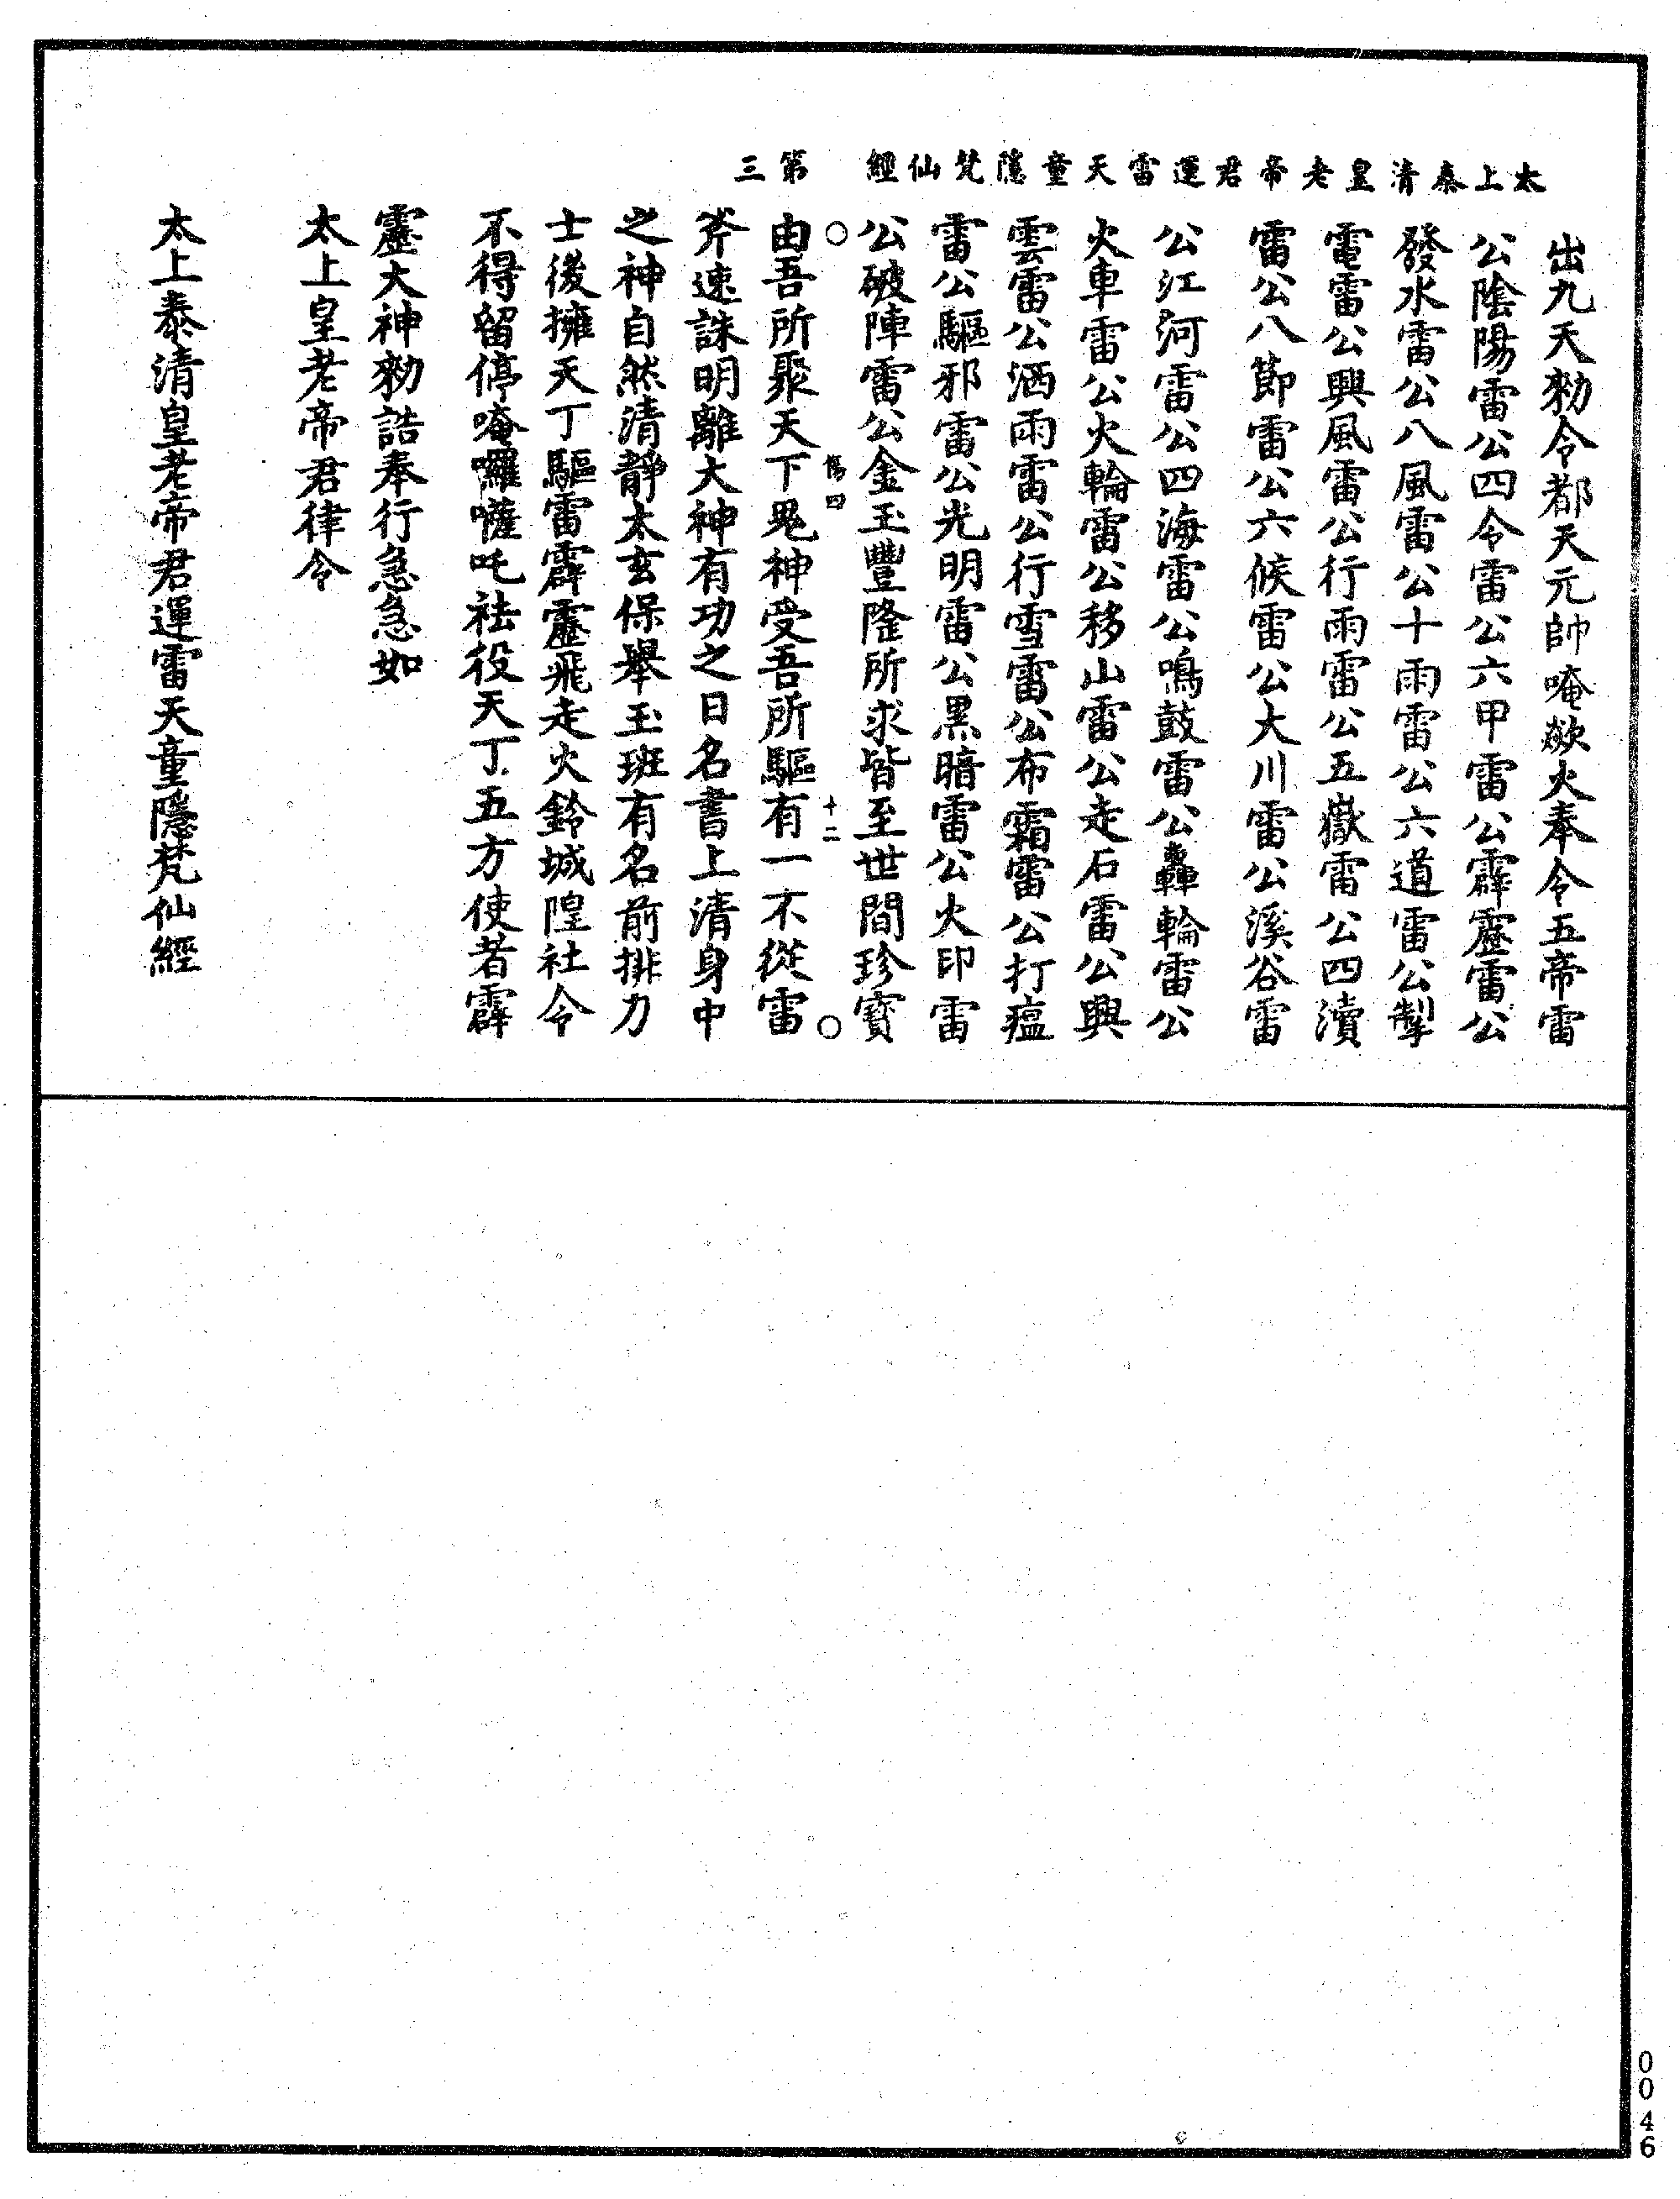 太上泰清皇老帝君運雷天童隱梵仙經　第三
出九天勑令都天元帥唵歘火奉令五帝雷
公陰陽雷公四令雷公六甲雷公霹靂雷公
發水雷公八風雷公十雨雷公六道雷公掣
電雷公興風雷公行雨雷公五嶽雷公四瀆
雷公八節雷公六候雷公大川雷公溪谷雷
公江河雷公四海雷公鳴鼓雷公轟輪雷公
火車雷公火輪雷公移山雷公走石雷公興
雲雷公洒雨雷公行雪雷公布霜雷公打瘟
雷公驅邪雷公光明雷公黑暗雷公火印雷
公破陣雷公金玉豐隆所求皆至世間珍寶
○傷四　十二○
由吾所聚天下鬼神受吾所驅有一不從雷
斧速誅明離大神有功之日名書上清身中
之神自然清靜太玄保舉玉班有名前排力
士後擁天丁驅雷霹靂飛走火鈴城隍社令
不得留停唵囉嚨吒袪役天丁五方使者霹
靂大神勑誥奉行急急如
太上皇老帝君律令
太上泰清皇老帝君運雷天童隱梵仙經
0046